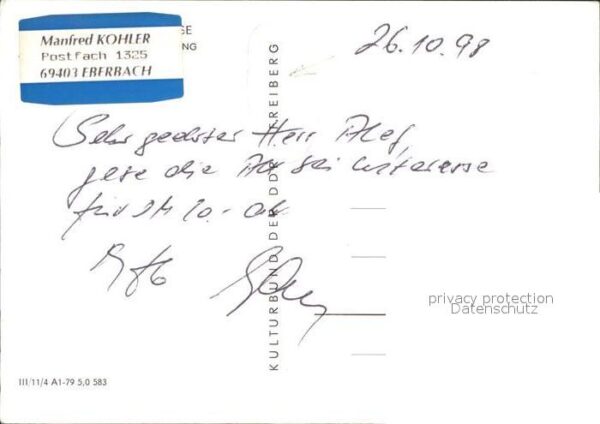 Manfred KOHLER
Postfach 1325
69403 EBERBACH
SE
NG
26.10.98
Sehr geehrter Herr
gebe die bei Interesse
für DM 10.- ab.
MfG
KULTURBUND DER DDR FREIBERG
privacy protection
Datenschutz
III/11/4 A1-79 5,0 583